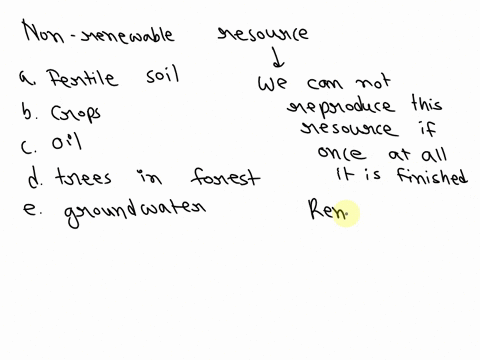 Non-renewable resource
a. Fertile soil
b. Crops
c. Oil
d. trees in forest
e. groundwater
we can not
reproduce this
resource if
once at all
It is finished
Ren